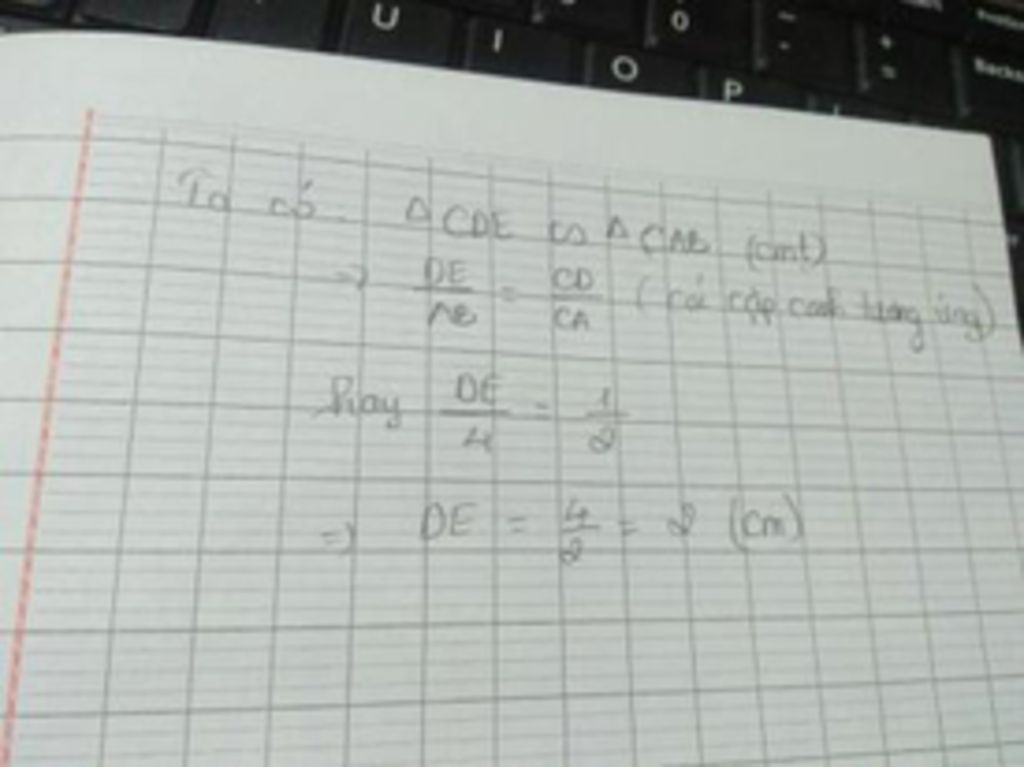 U I O P 0 - - + = Backs
Ta có ΔCDE ∽ ΔCAB (cmt)
=> DE/AB = CD/CA (các cặp cạnh tương ứng)
Hay DE/4 = 1/2
=> DE = 4/2 = 2 (cm)